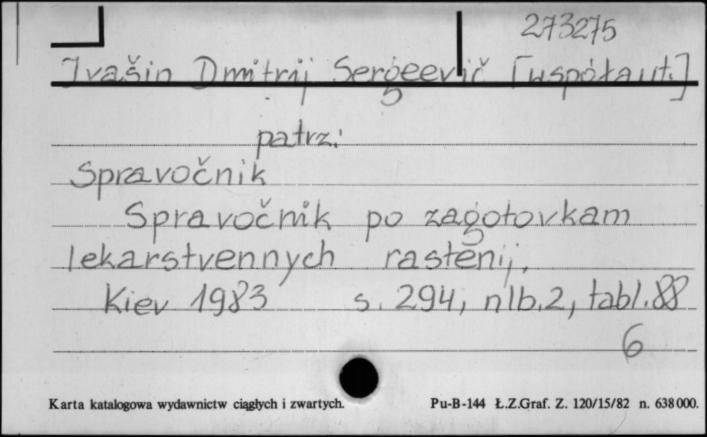 273275
Ivašin Dmitrij Sergeevič [współaut.]
patrz:
Spravočnik
Spravočnik po zagotovkam
lekarstvennych rastenij.
Kiev 1983 s. 294, nlb. 2, tabl. 88
6
Karta katalogowa wydawnictw ciągłych i zwartych. Pu-B-144 Ł.Z.Graf. Z. 120/15/82 n. 638000.